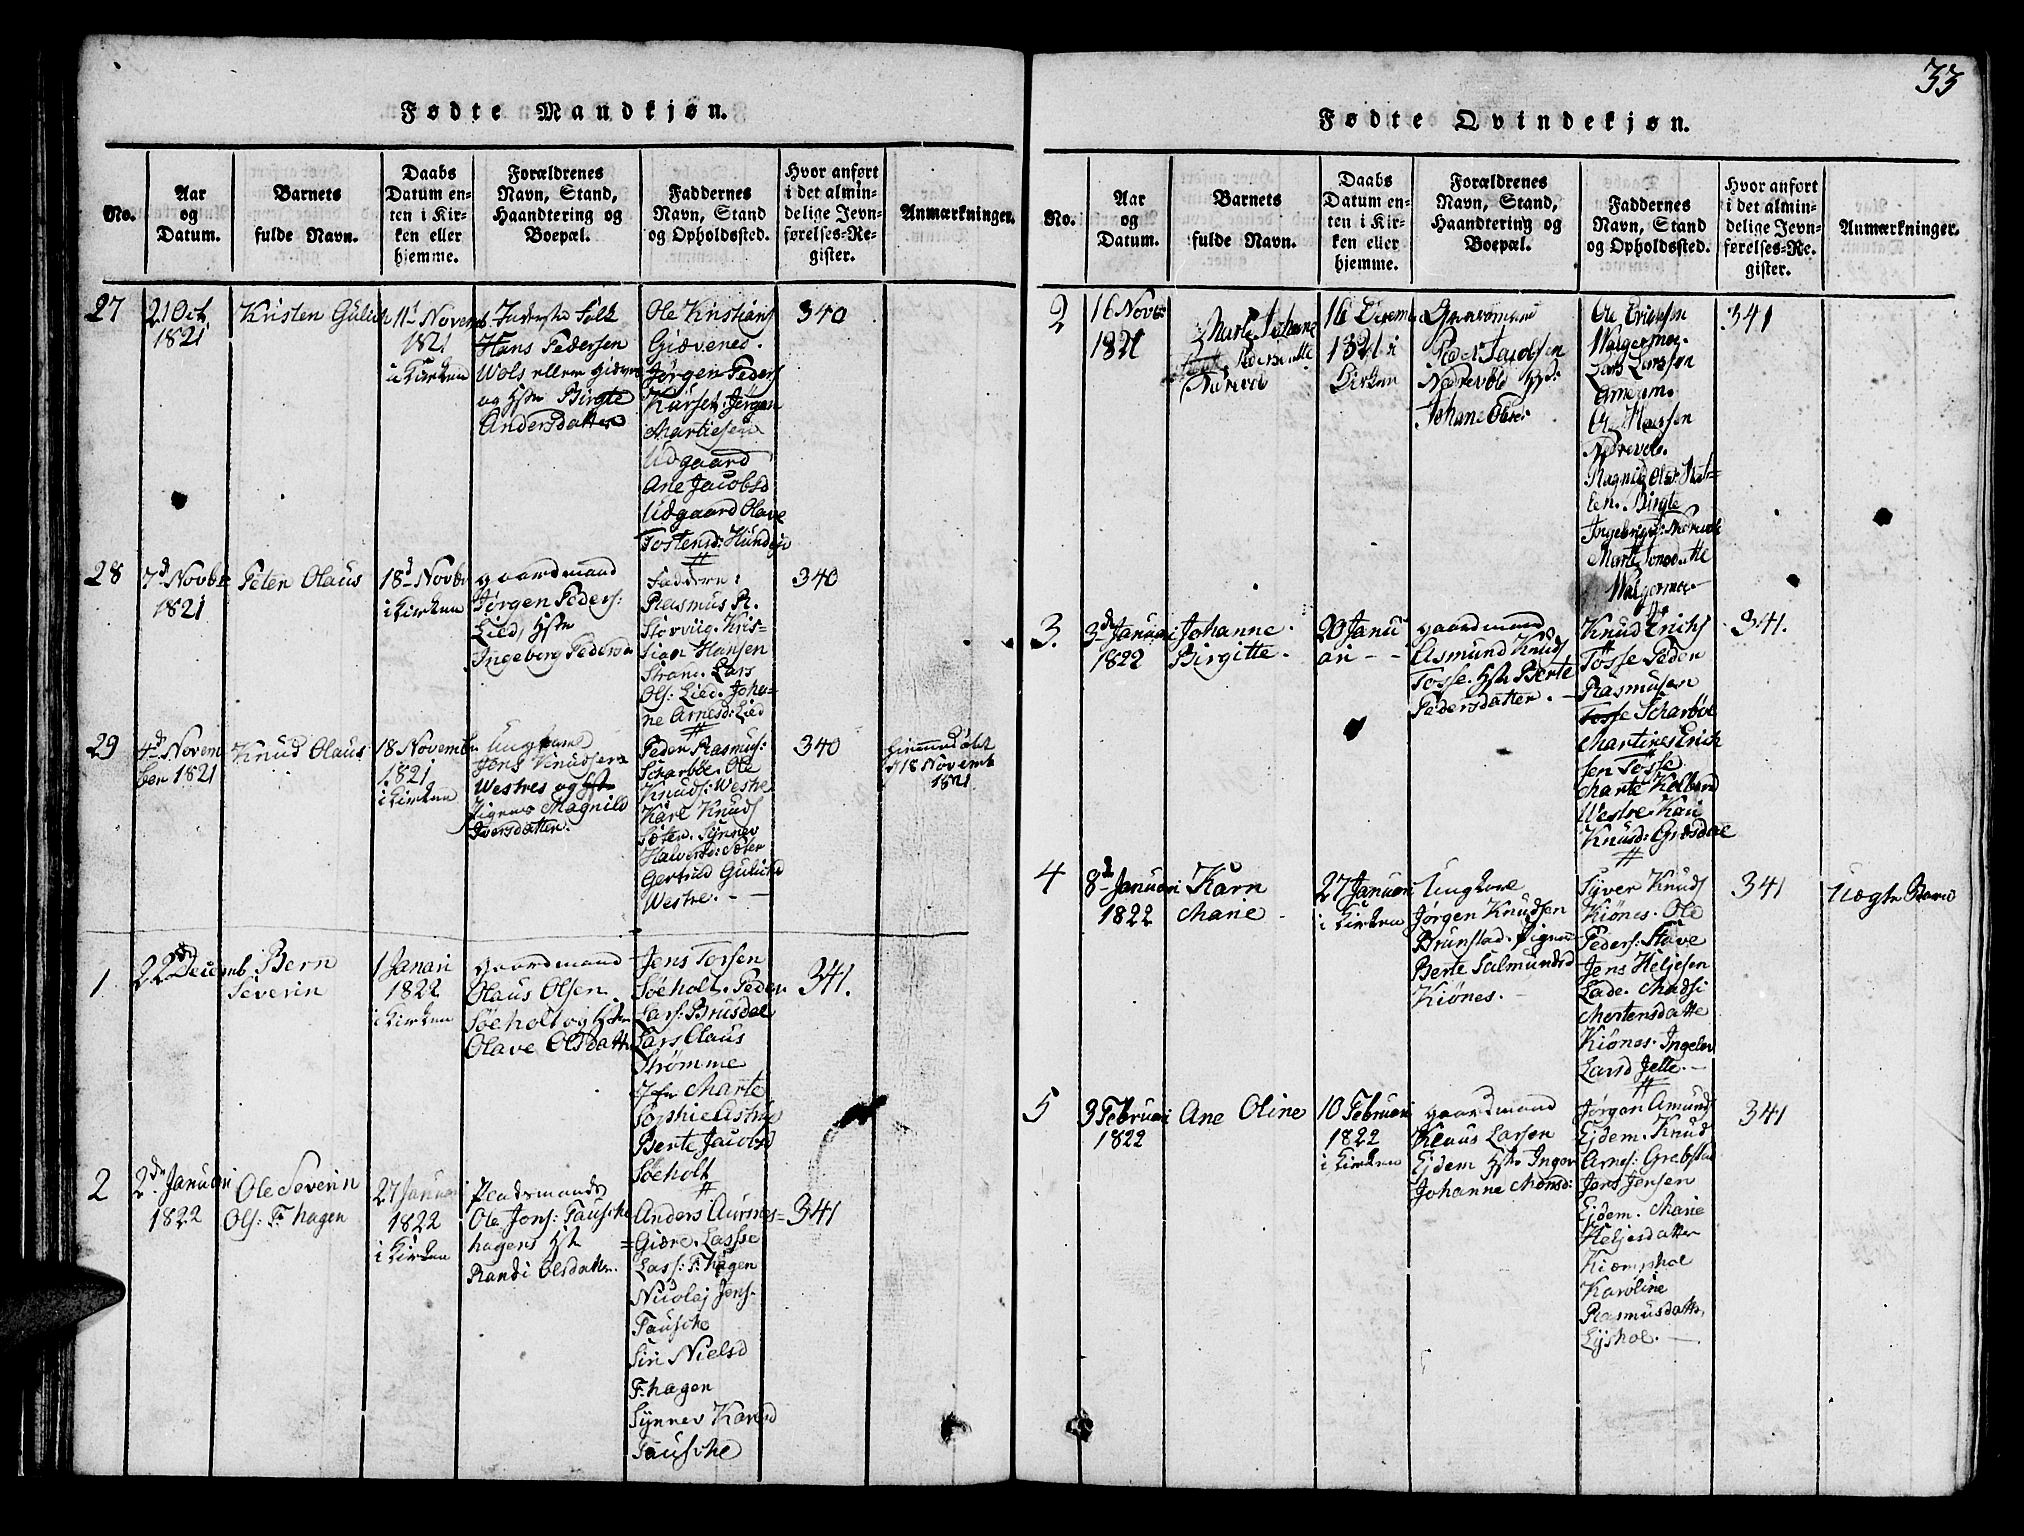 33
Fødte Mandkjøn.
No.
Aar
og
Datum.
Barnets
fulde Navn.
Daabs
Datum en-
ten i Kir-
ken eller
hjemme.
Forældrenes
Navn, Stand,
Haandtering og
Boepæl.
Faddernes
Navn, Stand
og Opholdssted.
Hvor anført
i det almin-
delige Jevn-
førelses-Re-
gister.
Anmærkninger.
27
21 Oct
1821
Kristen Gulich
11t Novemb
1821
i Kirken
Hans Pedersen
Wols eller
og Hstr Birgte
Andersdatter
Ole Kristians
Giævenes.
Jørgen Peders
Kurset. Jørgen
Martiesen
Udgaard
Ane Jacobsd
Udgaard Olave
Tostensd: Hundeja
340
28
7d Novbr
1821
Peter Olaus
18d Novbr
i Kirken
gaardmand
Jørgen Peders:
Lied, Hstr
Ingeborg Pedersd
Faddere:
Rasmus R.
Storviig. Kris=
tian Hansen
Strand. Lars
Ols: Lied. Joha=
ne Arnesd: Lied
340
29
4d Novem
ber 1821
Knud Olaus
18 Novemb
1821
i Kirken
Ungkarl
Jens Knudsen
Westres og
Pigen Magnild
Iversdatter.
Peder Rasmus:
Scharbøe. Ole
Knuds: Westre
Karl Knuds
Sæter. Synnev
Halversd: Sæter
Gertrud Gulichd
Westre. -
340
Hiemmedøbt
d 18 Novemb
1821
1
22de Decemb
Bern
Severin
1 Januari
1822
i Kirken
gaardmand
Olaus Olsen
Søeholt og Hstr
Olave Olsdatter
Jens Torsen
Søeholt. Peder
Lars: Brusdal
Lars Claus
Strømme
Jfr Marte
Sophie Astrup
Berte Jacobsd
Søeholt
341.
2
2de Januari
1822
Ole Severin
Ols: F. hagen
27 Januari
1822
i Kirken
Pladsmands
Ole Jons: Fausche
hagens Hstr
Randi Olsdatter.
Anders Aursnes=
Giære. Lasse
Lass: F. hagen
Nicolaj Jens.
Fausche
Siri Nielsd
F. hagen
Synnev Karlsd
Fausche
341
Fødte Qvindekjøn.
No.
Aar
og
Datum.
Barnets
fulde Navn.
Daabs
Datum en-
ten i Kir-
ken eller
hjemme.
Forældrenes
Navn, Stand,
Haandtering og
Boepæl.
Faddernes
Navn, Stand
og Opholdssted.
Hvor anført
i det almin-
delige Jevn-
førelses-Re-
gister.
Anmærkninger.
2
16 Novbr
1821
Marte Johane
Pedersdatte
Nærevol
16 Decem
1821 i
Kirken
Peder Jacobsen
Nedrevold Hstr
Johane Olsd:
Ole Ericksen
Walgermoe.
Lars Larssen
Arnejem.
Ole Hanssen
Nedrevold.
Ragnild Olsd:
Birgte
Marte Jonsdatte
Walgermoe
341
3.
3d Januari
1822
Johanne
Birgitte.
20 Janu
ari - -
gaardmand
Asmund Knuds
Tosse. Hstr Berte
Pedersdatter. -
Knud Erichs
Tosse Peder
Rasmusen
Scharbøe
Martines Erich
sen Tosse
Marte Kolbend
Westre. Kari
Knusd: Græsdal
341.
4
8de Januari
1822
Karn
Marie -
27 Januari
i Kirken
Ungkarl
Jørgen Knudsen
Brunstad. Pigen
Berte Salmundsd
Kiønes. -
Syver Knuds
Kiønes. Ole
Peders: Stave
Jens Heljesen
Lade. Madsi
Mortensdatte
Kiønes. Ingebor
Larsd Jelle. -
341
Uægte Barn
5
3 Februari
1822
Ane Oline
10 Februari
1822
i Kirken
gaardmand
Klaus Larsen
Ejdem Hstr Inger
Johanne Monsd:
Jørgen Amunds
Ejdem. Knud
Arnes: Grebstad
Jens Jensen
Ejdem. Marie
Heljesdatter
Kiempshol
Karoline
Rasmusdatter
Lyshol. -
341